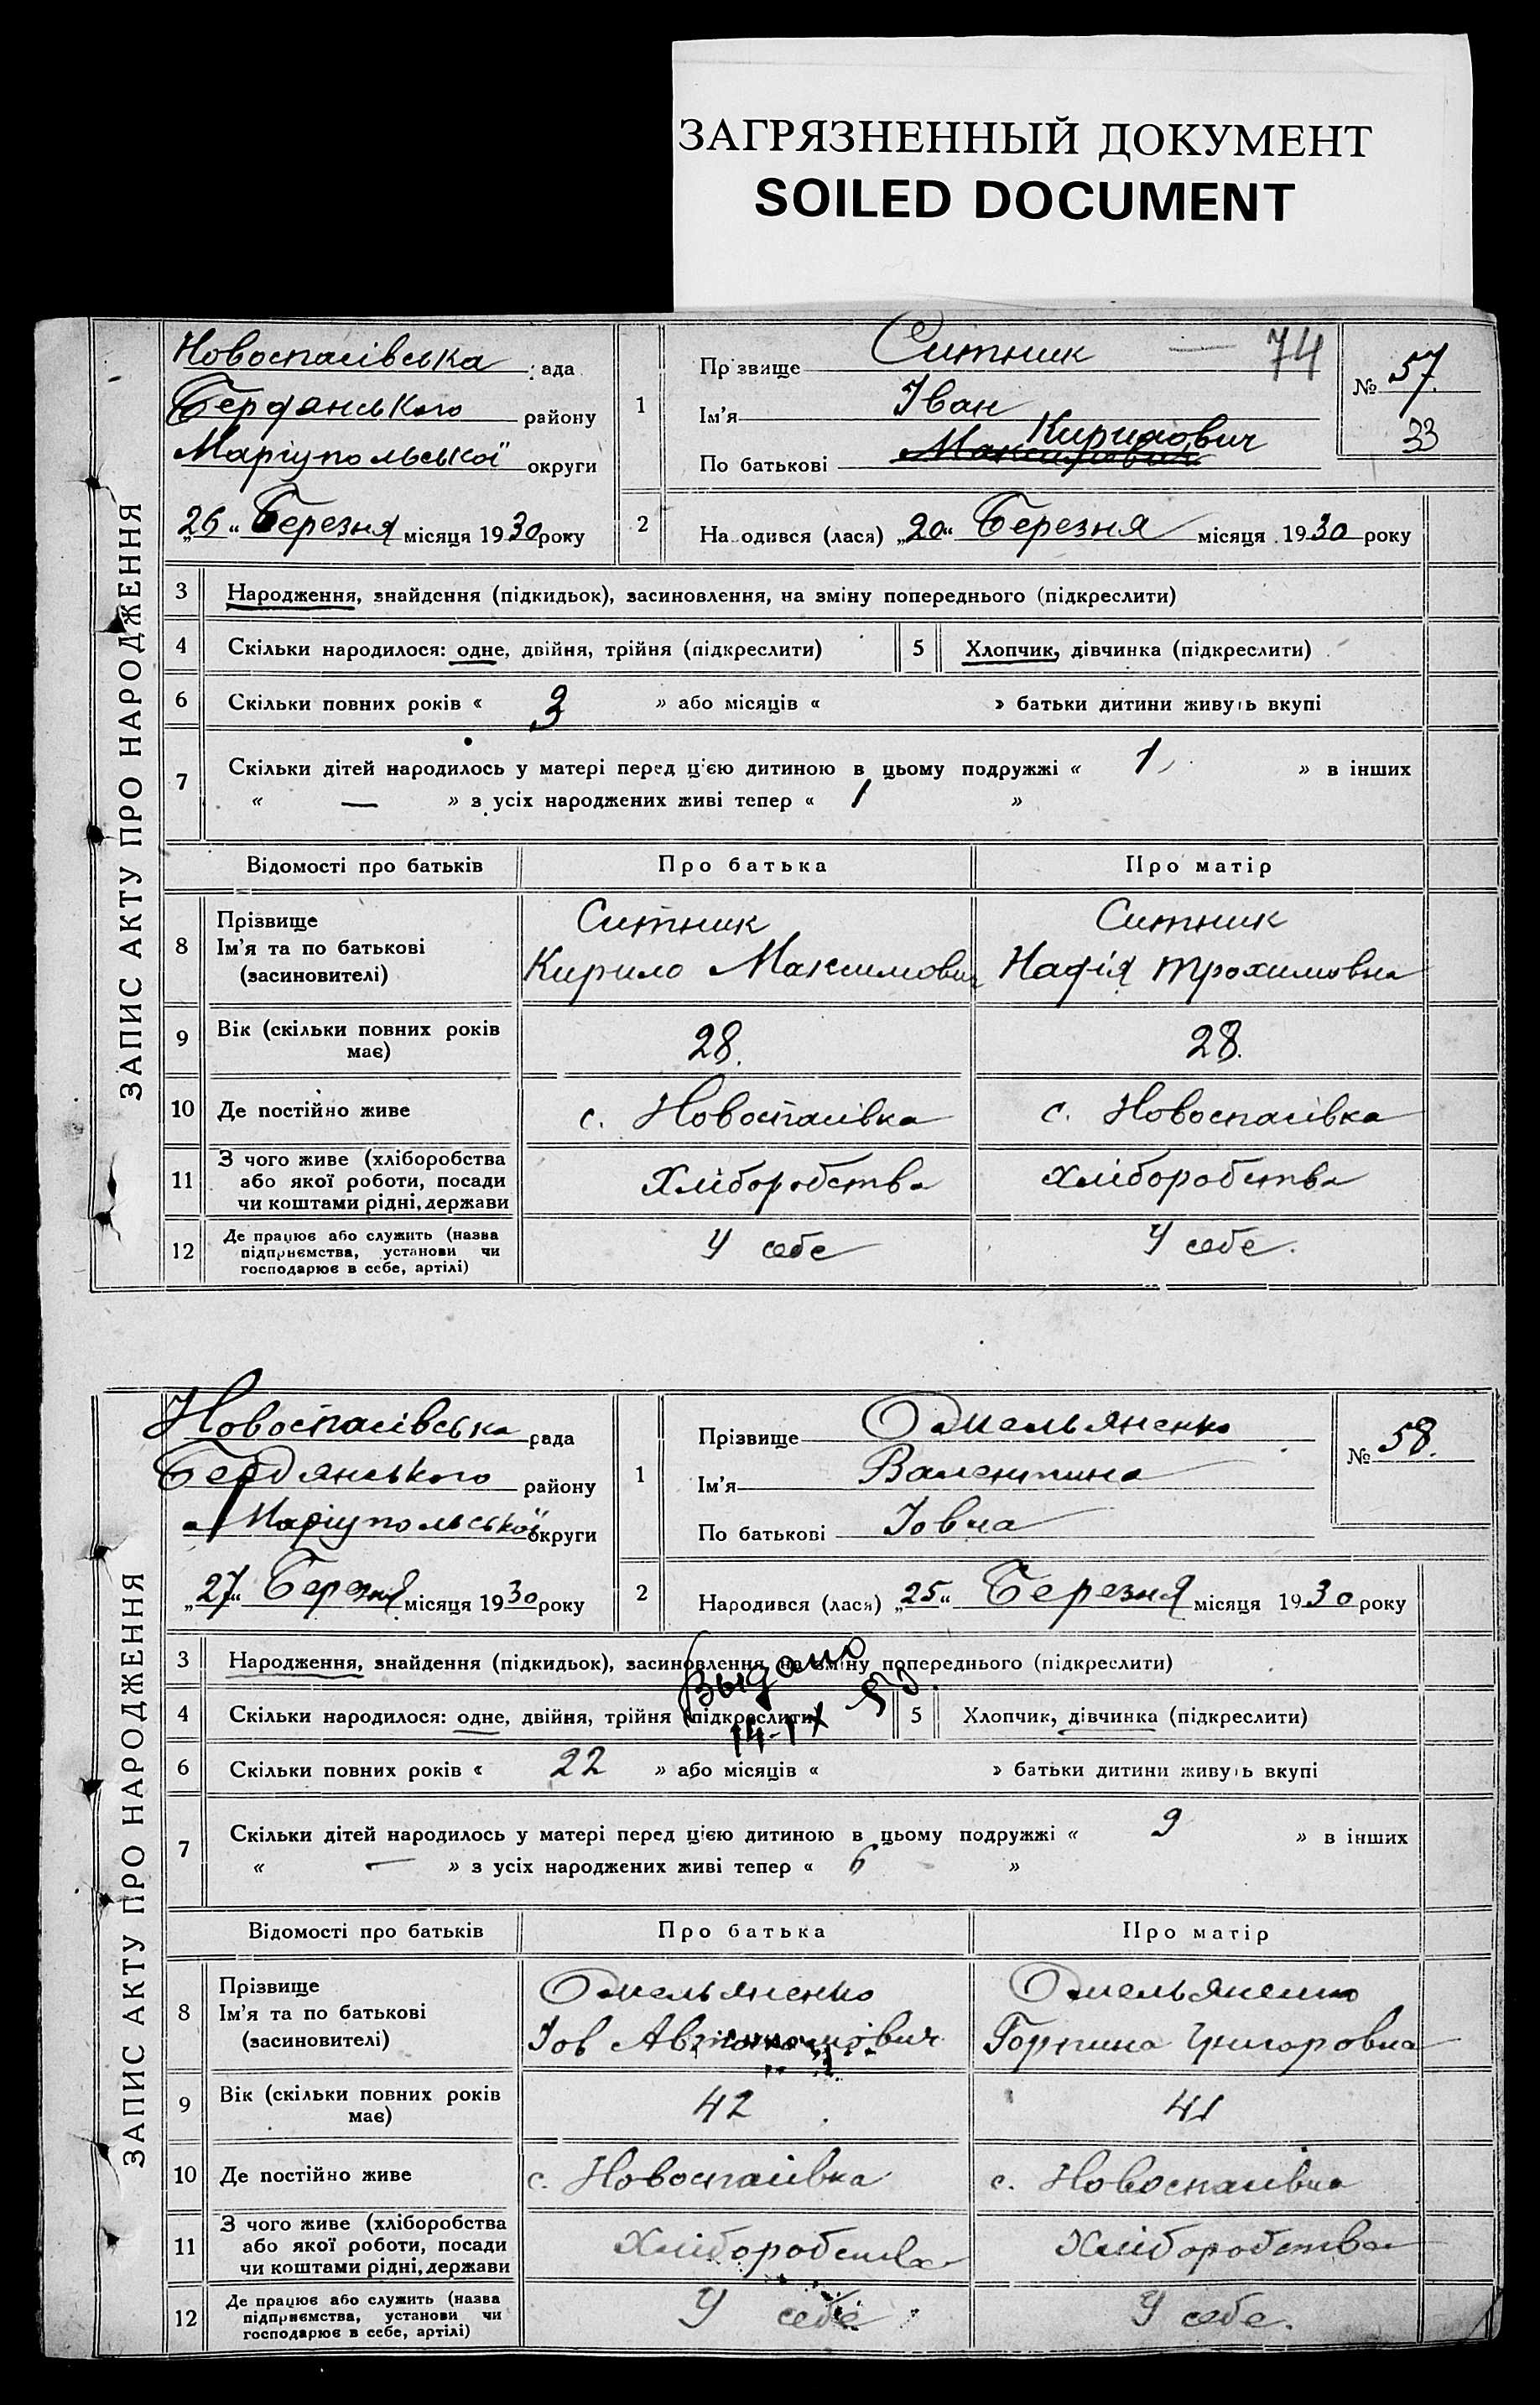 ЗАГРЯЗНЕННЫЙ ДОКУМЕНТ
SOILED DOCUMENT
ЗАПИС АКТУ ПРО НАРОДЖЕННЯ
Новоспасівська рада
Бердянського району
Маріупольської округи
„26“ Березня місяця 1930 року
1
Прізвище Ситник 74
Ім'я Іван
Кирилович
По батькові Максимович
№ 57.
33
2 Народився (лася) „20“ Березня місяця 1930 року
3 Народження, знайдення (підкидьок), засиновлення, на зміну попереднього (підкреслити)
4 Скільки народилося: одне, двійня, трійня (підкреслити) 5 Хлопчик, дівчинка (підкреслити)
6 Скільки повних років « 3 » або місяців « » батьки дитини живуть вкупі
7 Скільки дітей народилось у матері перед цією дитиною в цьому подружжі « 1 » в інших
« — » з усіх народжених живі тепер « 1 »
Відомості про батьків Про батька Про матір
8 Прізвище Ситник Ситник
Ім'я та по батькові Кирило Максимович Надія Трохимовна
(засиновителі)
9 Вік (скільки повних років має) 28. 28.
10 Де постійно живе с. Новоспасівка с. Новоспасівка
11 З чого живе (хліборобства
або якої роботи, посади Хліборобства Хліборобства
чи коштами рідні, держави
12 Де працює або служить (назва У себе У себе.
підприємства, установи чи
господарює в себе, артілі)
ЗАПИС АКТУ ПРО НАРОДЖЕННЯ
Новоспасівська рада
Бердянського району
Маріупольської округи
„27“ Березня місяця 1930 року
1
Прізвище Омельяненко
Ім'я Валентина
По батькові Іовна
№ 58.
2 Народився (лася) „25“ Березня місяця 1930 року
3 Народження, знайдення (підкидьок), засиновлення, на зміну попереднього (підкреслити)
Выдано
14-IX
4 Скільки народилося: одне, двійня, трійня (підкреслити) 5 Хлопчик, дівчинка (підкреслити)
6 Скільки повних років « 22 » або місяців « » батьки дитини живуть вкупі
7 Скільки дітей народилось у матері перед цією дитиною в цьому подружжі « 9 » в інших
« — » з усіх народжених живі тепер « 6 »
Відомості про батьків Про батька Про матір
8 Прізвище Омельяненко Омельяненко
Ім'я та по батькові Іов Горпина Григоровна
(засиновителі)
9 Вік (скільки повних років має) 42 41
10 Де постійно живе с. Новоспасівка с. Новоспасівка
11 З чого живе (хліборобства
або якої роботи, посади Хліборобства Хліборобства
чи коштами рідні, держави
12 Де працює або служить (назва У себе У себе.
підприємства, установи чи
господарює в себе, артілі)